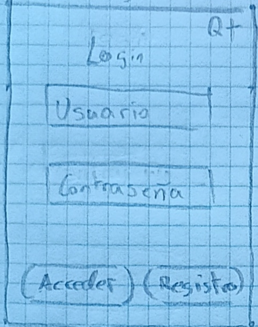 Q+
Login
Usuario
Contraseña
Acceder Registro